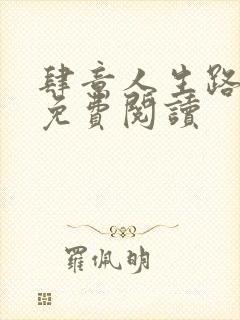 肆意人生路
免費閱讀
羅佩明